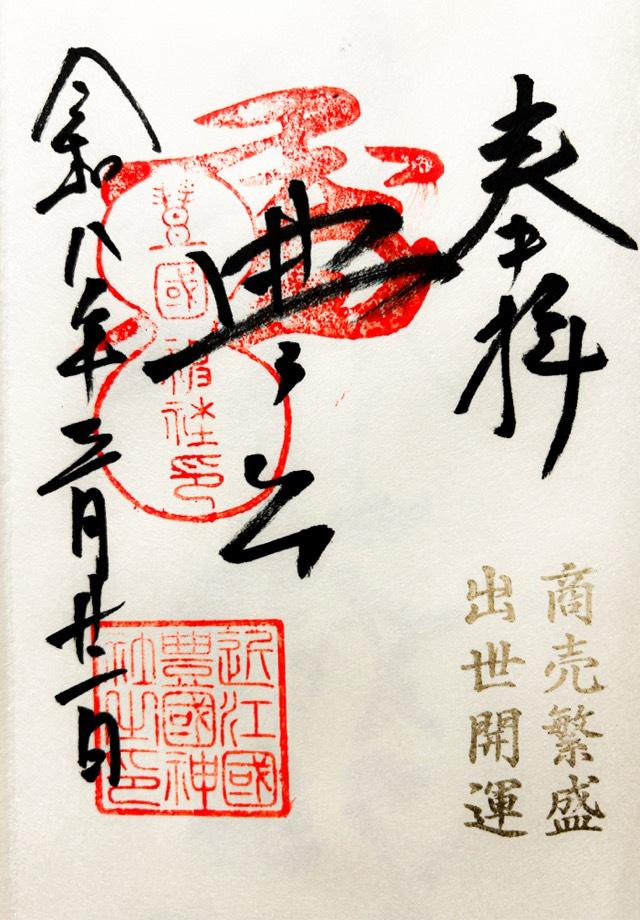 奉拝
商売繁盛
出世開運
豊公
近江國
豊國神
社之印
令和八年三月廿一日